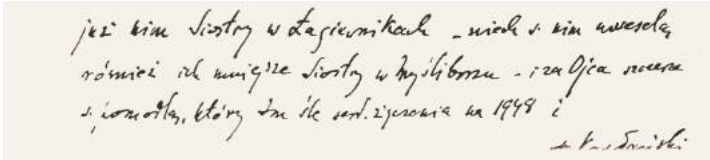 już nim Siostry w Łagiewnikach – niech s. nim uweselą
również ich mniejsze Siostry w Myśliborzu – i za Ojca
s. pomodlą, który Im śle serd. życzenia na 1948 i